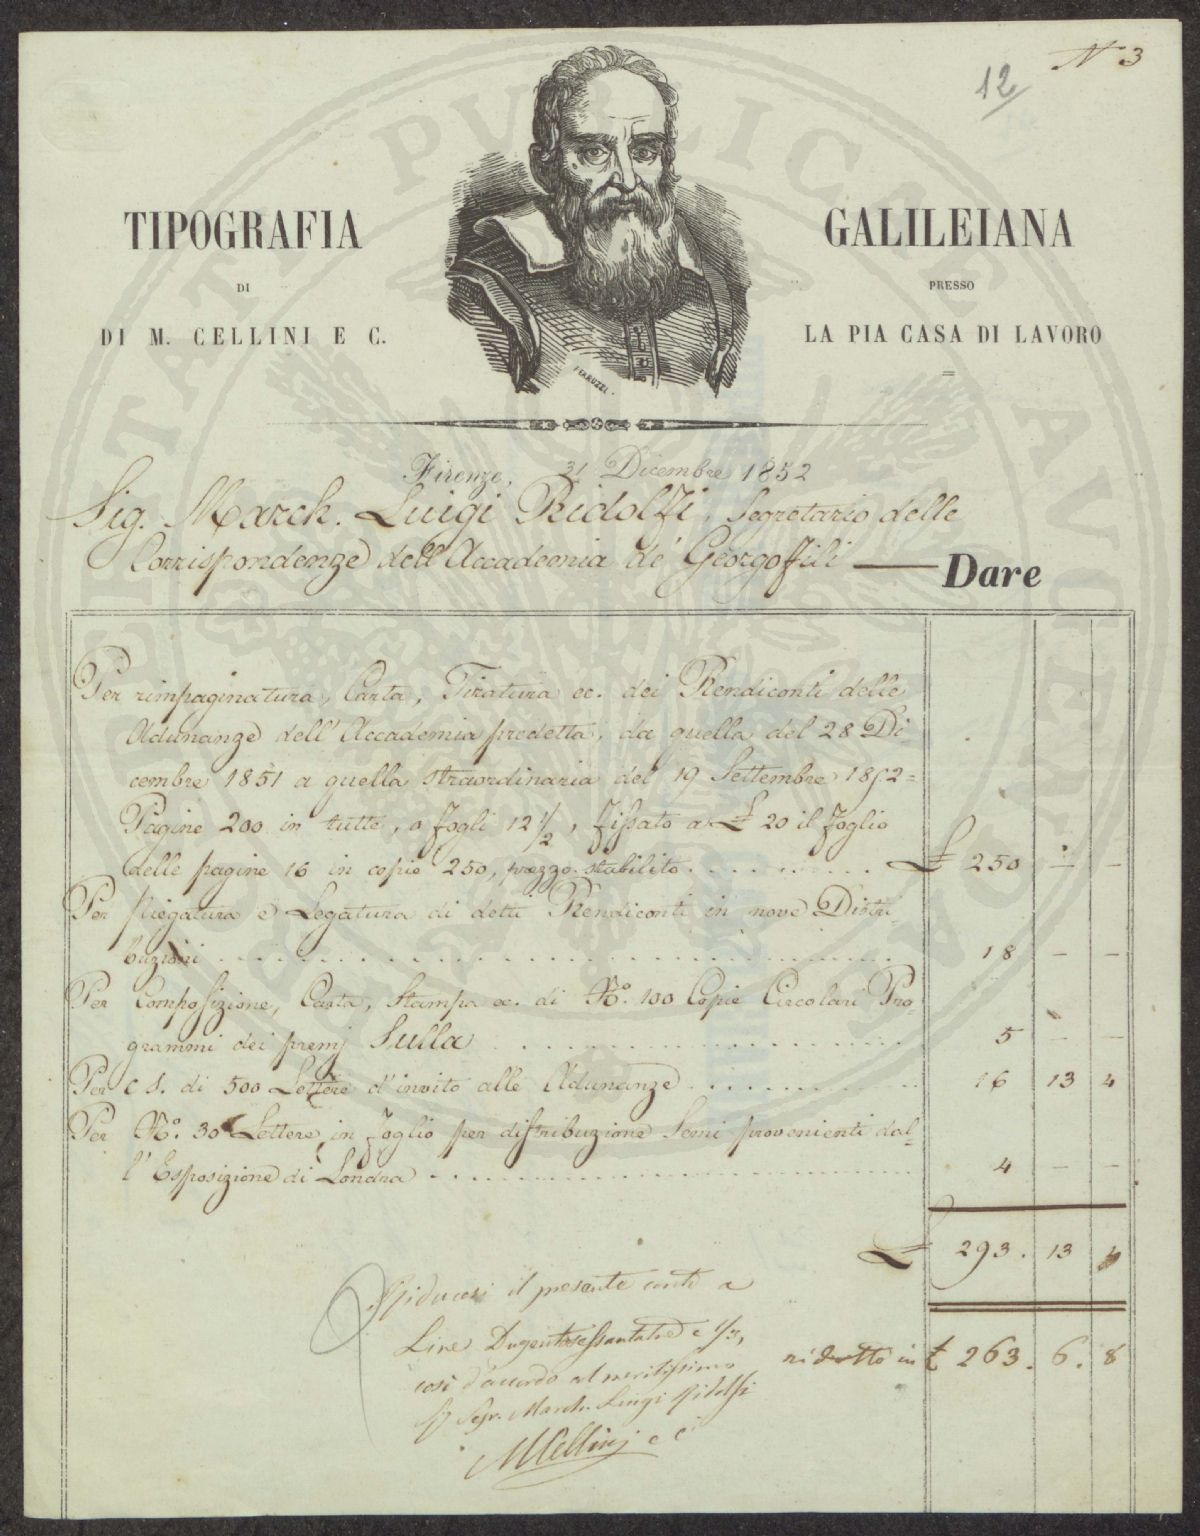 N 3
12
TIPOGRAFIA
DI
DI M. CELLINI E C.
GALILEIANA
PRESSO
LA PIA CASA DI LAVORO
FERRUZZI.
Firenze, 31 Dicembre 1852
Sig. March. Luigi Ridolfi, Segretario delle
Corrispondenze dell'Accademia de' Georgofili — Dare
Per rimpaginatura, Carta, Tiratura ec. dei Rendiconti delle
Adunanze dell'Accademia predetta, da quella del 28 Di-
cembre 1851 a quella straordinaria del 19 Settembre 1852=
Pagine 200 in tutte, o fogli 12 1/2, fissato a £ 20 il foglio
delle pagine 16 in copie 250, prezzo stabilito . . . . . . . . . . £ 250 — —
Per Piegatura e Legatura di detti Rendiconti in nove Distri-
buzioni . . . . . . . . . . 18 — —
Per Composizione, Carta, Stampa ec. di N.º 100 Copie Circolari Pro-
grammi dei premj Sulla . . . . . . . . . . 5 — —
Per c s. di 500 Lettere d'invito alle Adunanze . . . . . . . . . . 16 13 4
Per N.º 30 Lettere in foglio per distribuzione Semi provenienti dal-
l'Esposizione di Londra . . . . . . . . . . 4 — —
£ 293. 13 4
Riducesi il presente conto a
Lire Dugentosessantatre e 1/3,
così d'accordo al meritissimo
Sig Segr. March. Luigi Ridolfi
MCellini e C
ridotto in £ 263. 6. 8